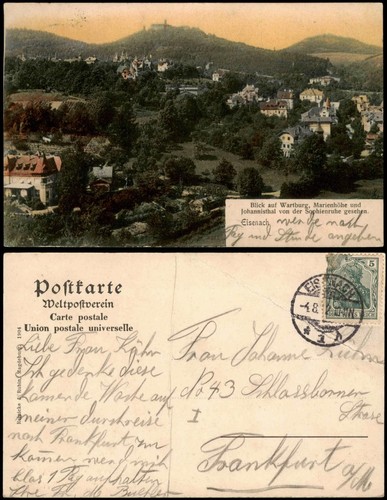 Blick auf Wartburg, Marienhöhe und
Johannisthal von der Sophienruhe gesehen.
Eisenach. werde noch
Tag und Stunde angeben
Postkarte
Weltpostverein
Carte postale
Union postale universelle
Liebe Frau Kühn
Ich gedenke diese
kommende Woche auf
meiner durchreise
nach Frankfurt zu
kommen werde mich
1 Tag aufhalten
Frau Johanne
No 43 Schlossborner
I
Strase
Frankfurt a/M
EISENACH
5